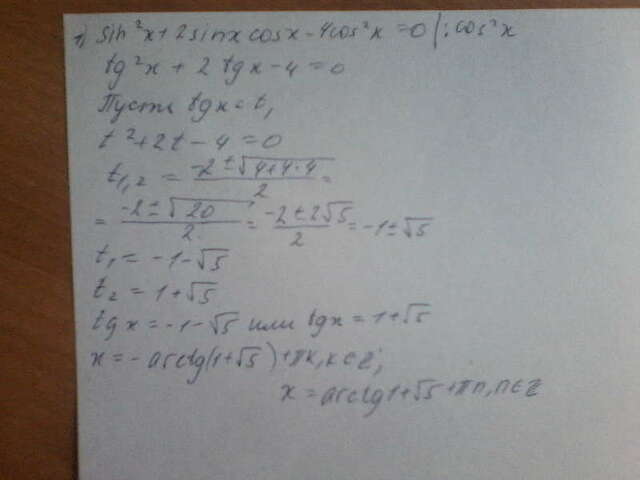 1) sin²x + 2sinx cosx - 4cos²x = 0 |: cos²x
tg²x + 2 tgx - 4 = 0
Пусть tgx = t,
t² + 2t - 4 = 0
t₁,₂ = (-2 ± √(4+4·4))/2 =
= (-2 ± √20)/2 = (-2 ± 2√5)/2 = -1 ± √5
t₁ = -1 - √5
t₂ = 1 + √5
tgx = -1 - √5 или tgx = 1 + √5
x = - arctg(1+√5) + πk, k ∈ Z;
x = arctg 1+√5 + πn, n ∈ Z